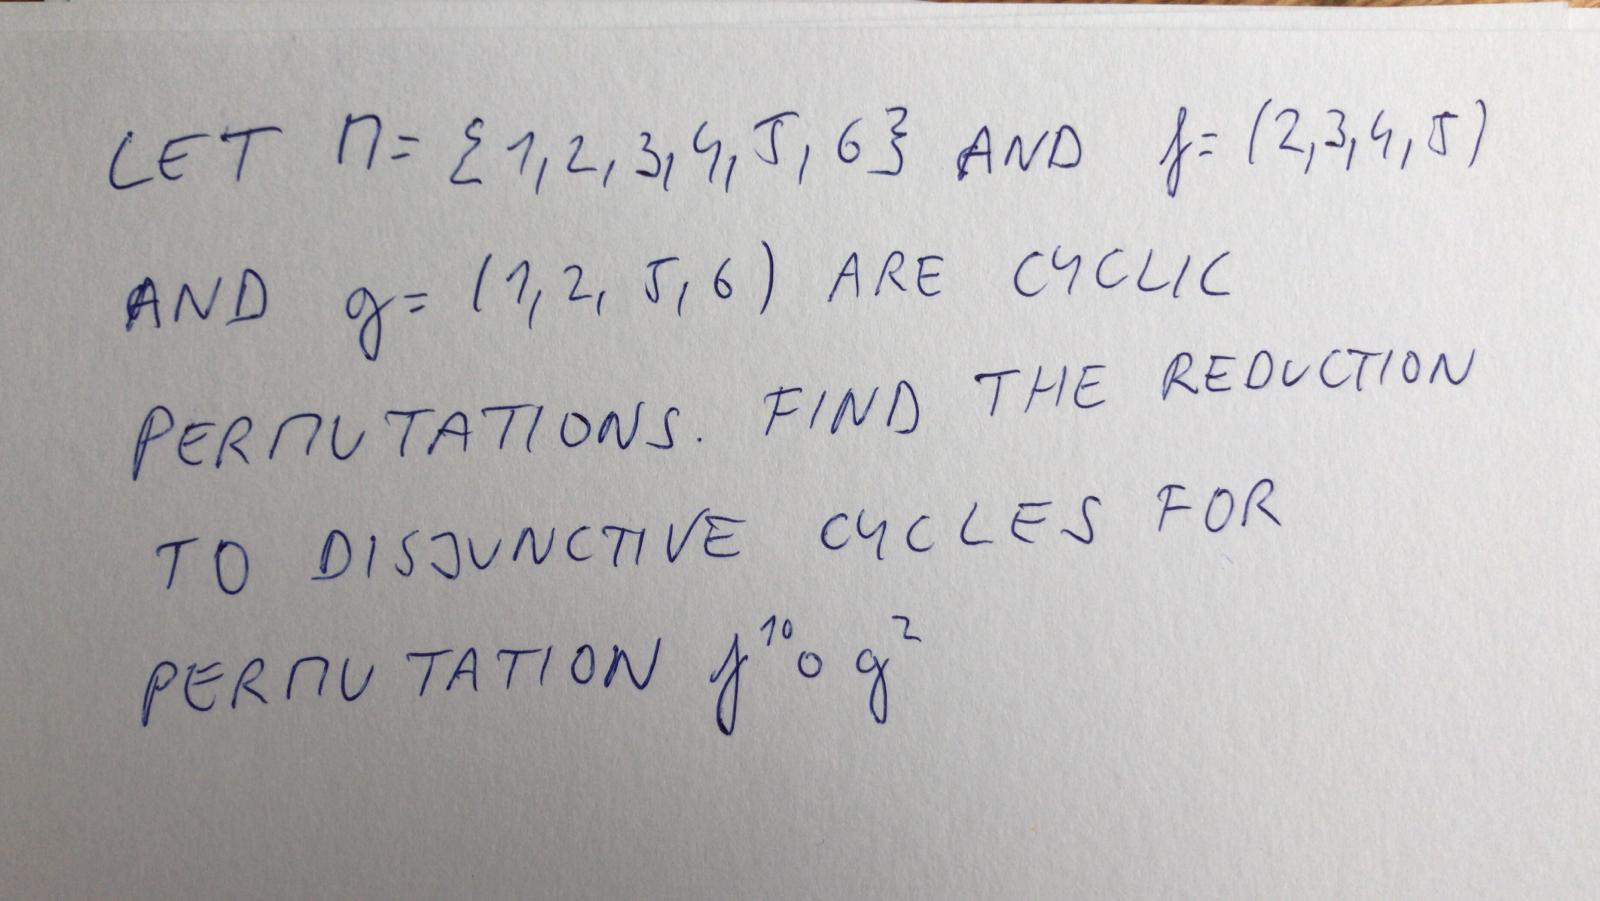 LET M= {1,2,3,4,5,6} AND f= (2,3,4,5)
AND g= (1,2,5,6) ARE CYCLIC
PERMUTATIONS. FIND THE REDUCTION
TO DISJUNCTIVE CYCLES FOR
PERMUTATION f¹⁰∘g²